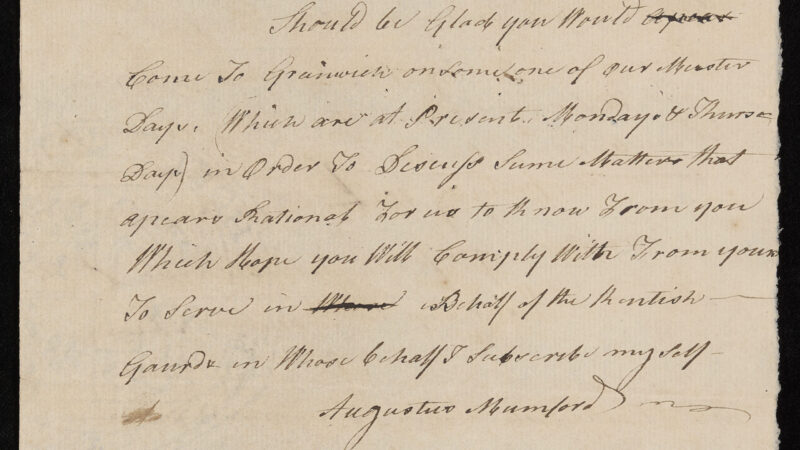 Should be Glad you Would apear
Come To Grainwich on some one of our Muster
Days. (Which are at Present. Mondays & Thurs=
Days) in Order To Discuss Sume Matters that
apears Rational For us to Know From you
Which Hope you Will Comply With From yours
To Serve in Whose Behalf of the Kentish
Gaurds in Whose behalf I Subscribe my self
Augustus Mumford